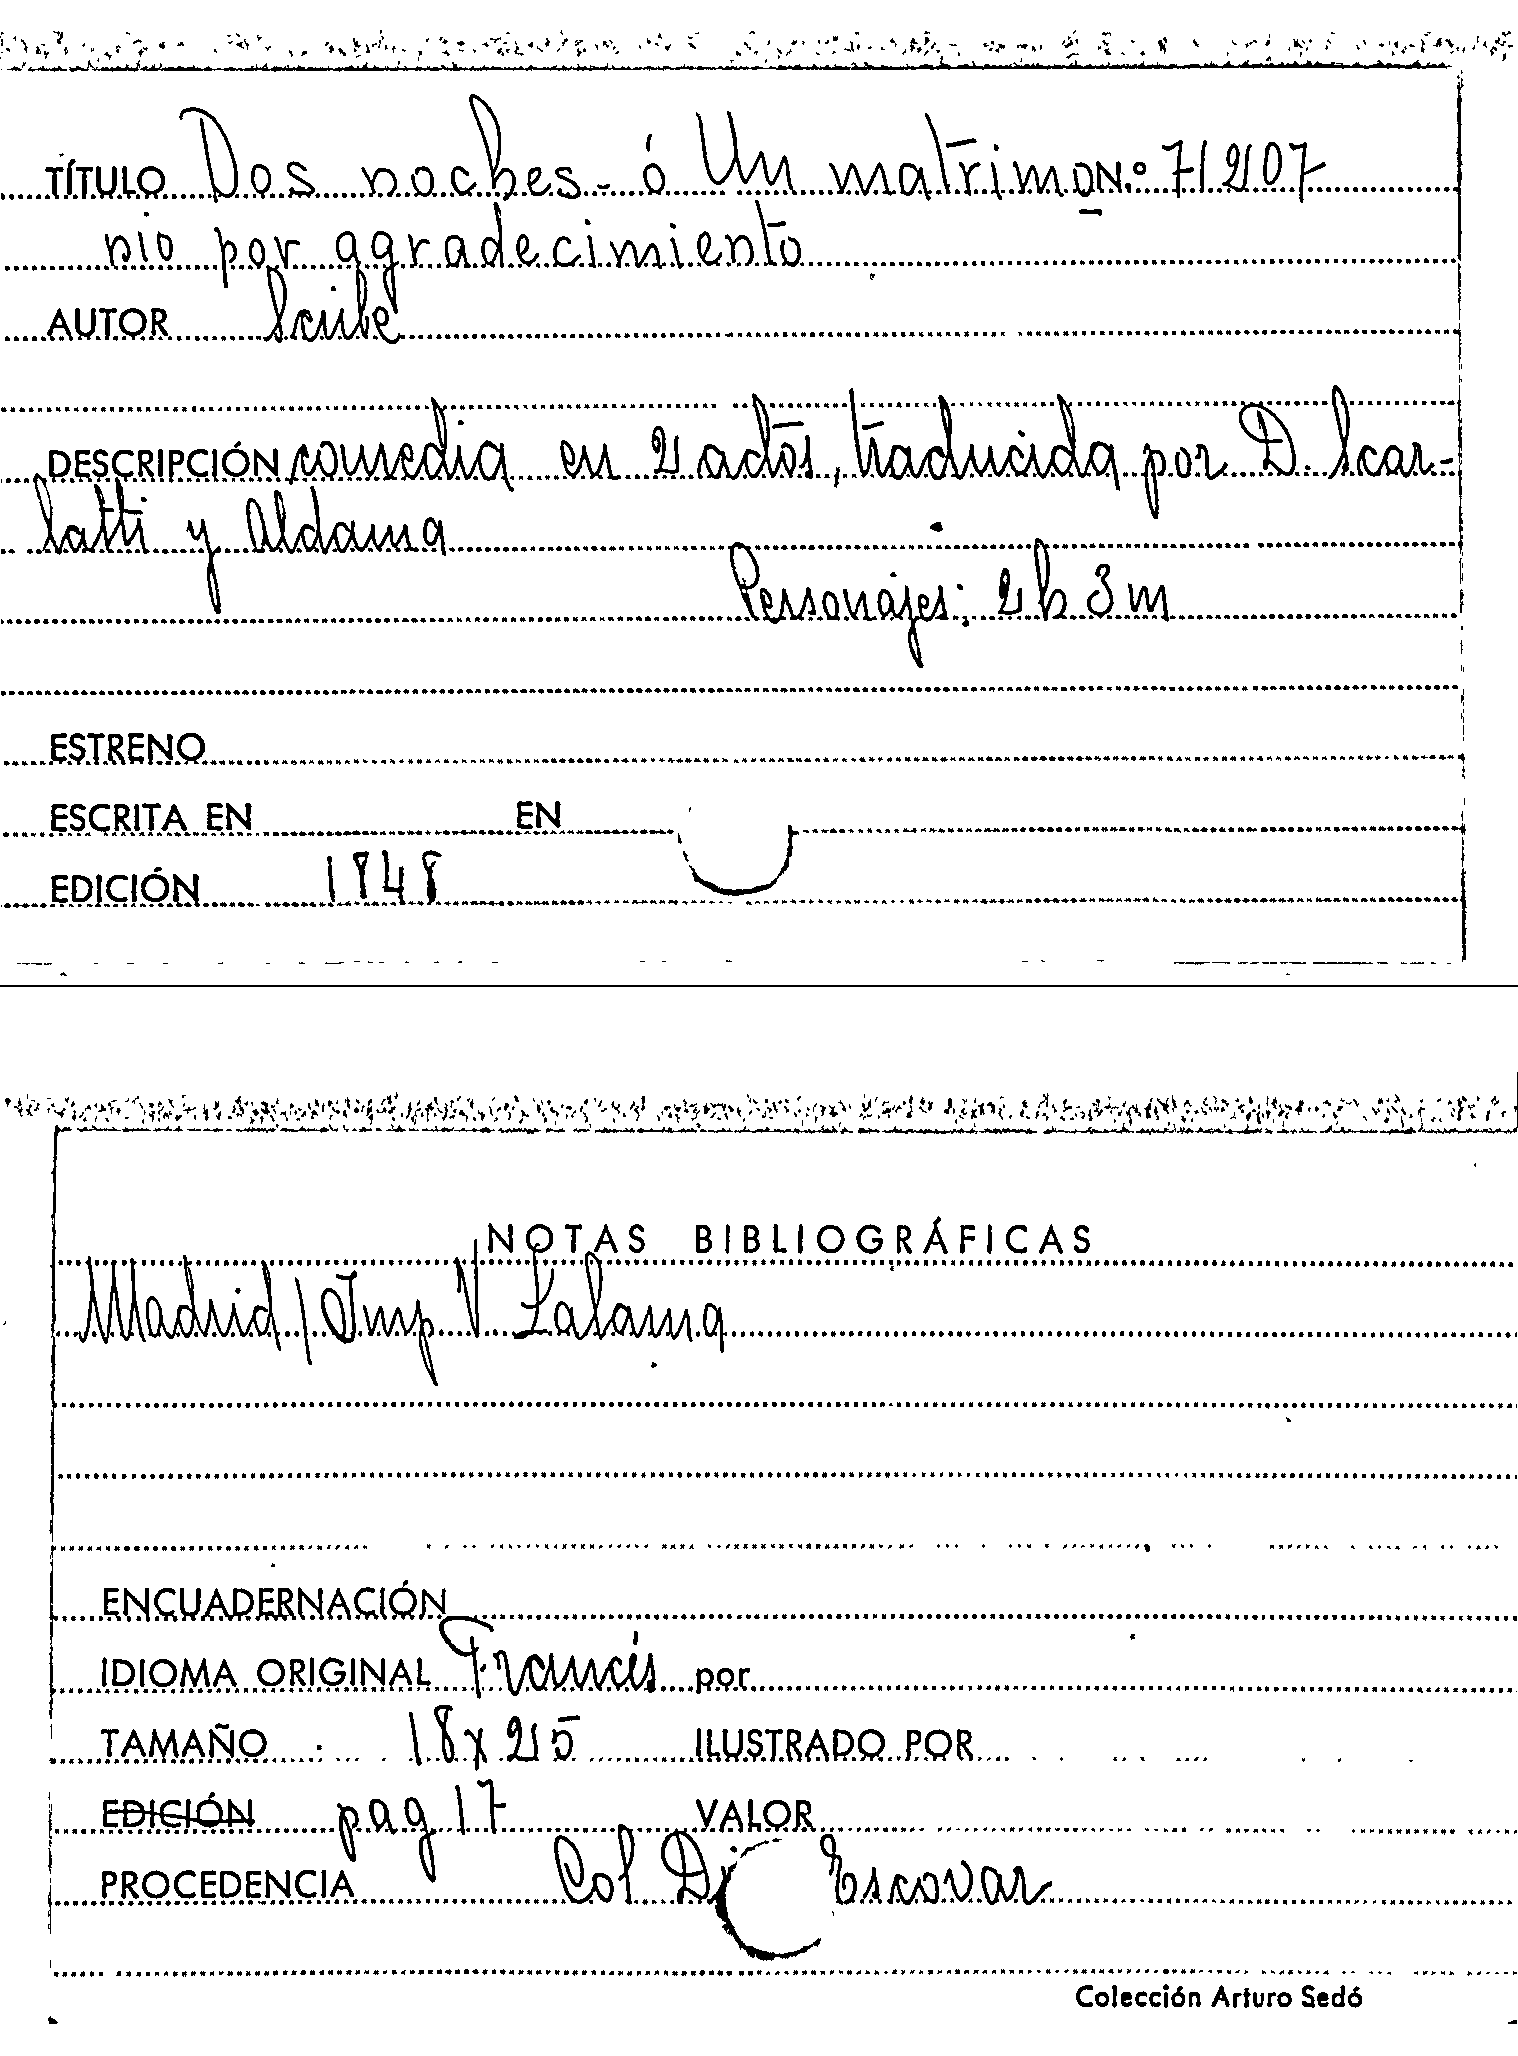 TÍTULO Dos noches - ó Un matrimo Nº 71207
nio por agradecimiento
AUTOR Scribe
DESCRIPCIÓN comedia en 2 actos, traducida por D. Scar-
latti y Aldama
Personajes: 2 h 3 m
ESTRENO
ESCRITA EN EN
EDICIÓN 1848
NOTAS BIBLIOGRÁFICAS
Madrid / Imp V Lalama
ENCUADERNACIÓN
IDIOMA ORIGINAL Francés por
TAMAÑO 18 x 25 ILUSTRADO POR
EDICIÓN pag 17 VALOR
PROCEDENCIA Col Escovar
Colección Arturo Sedó